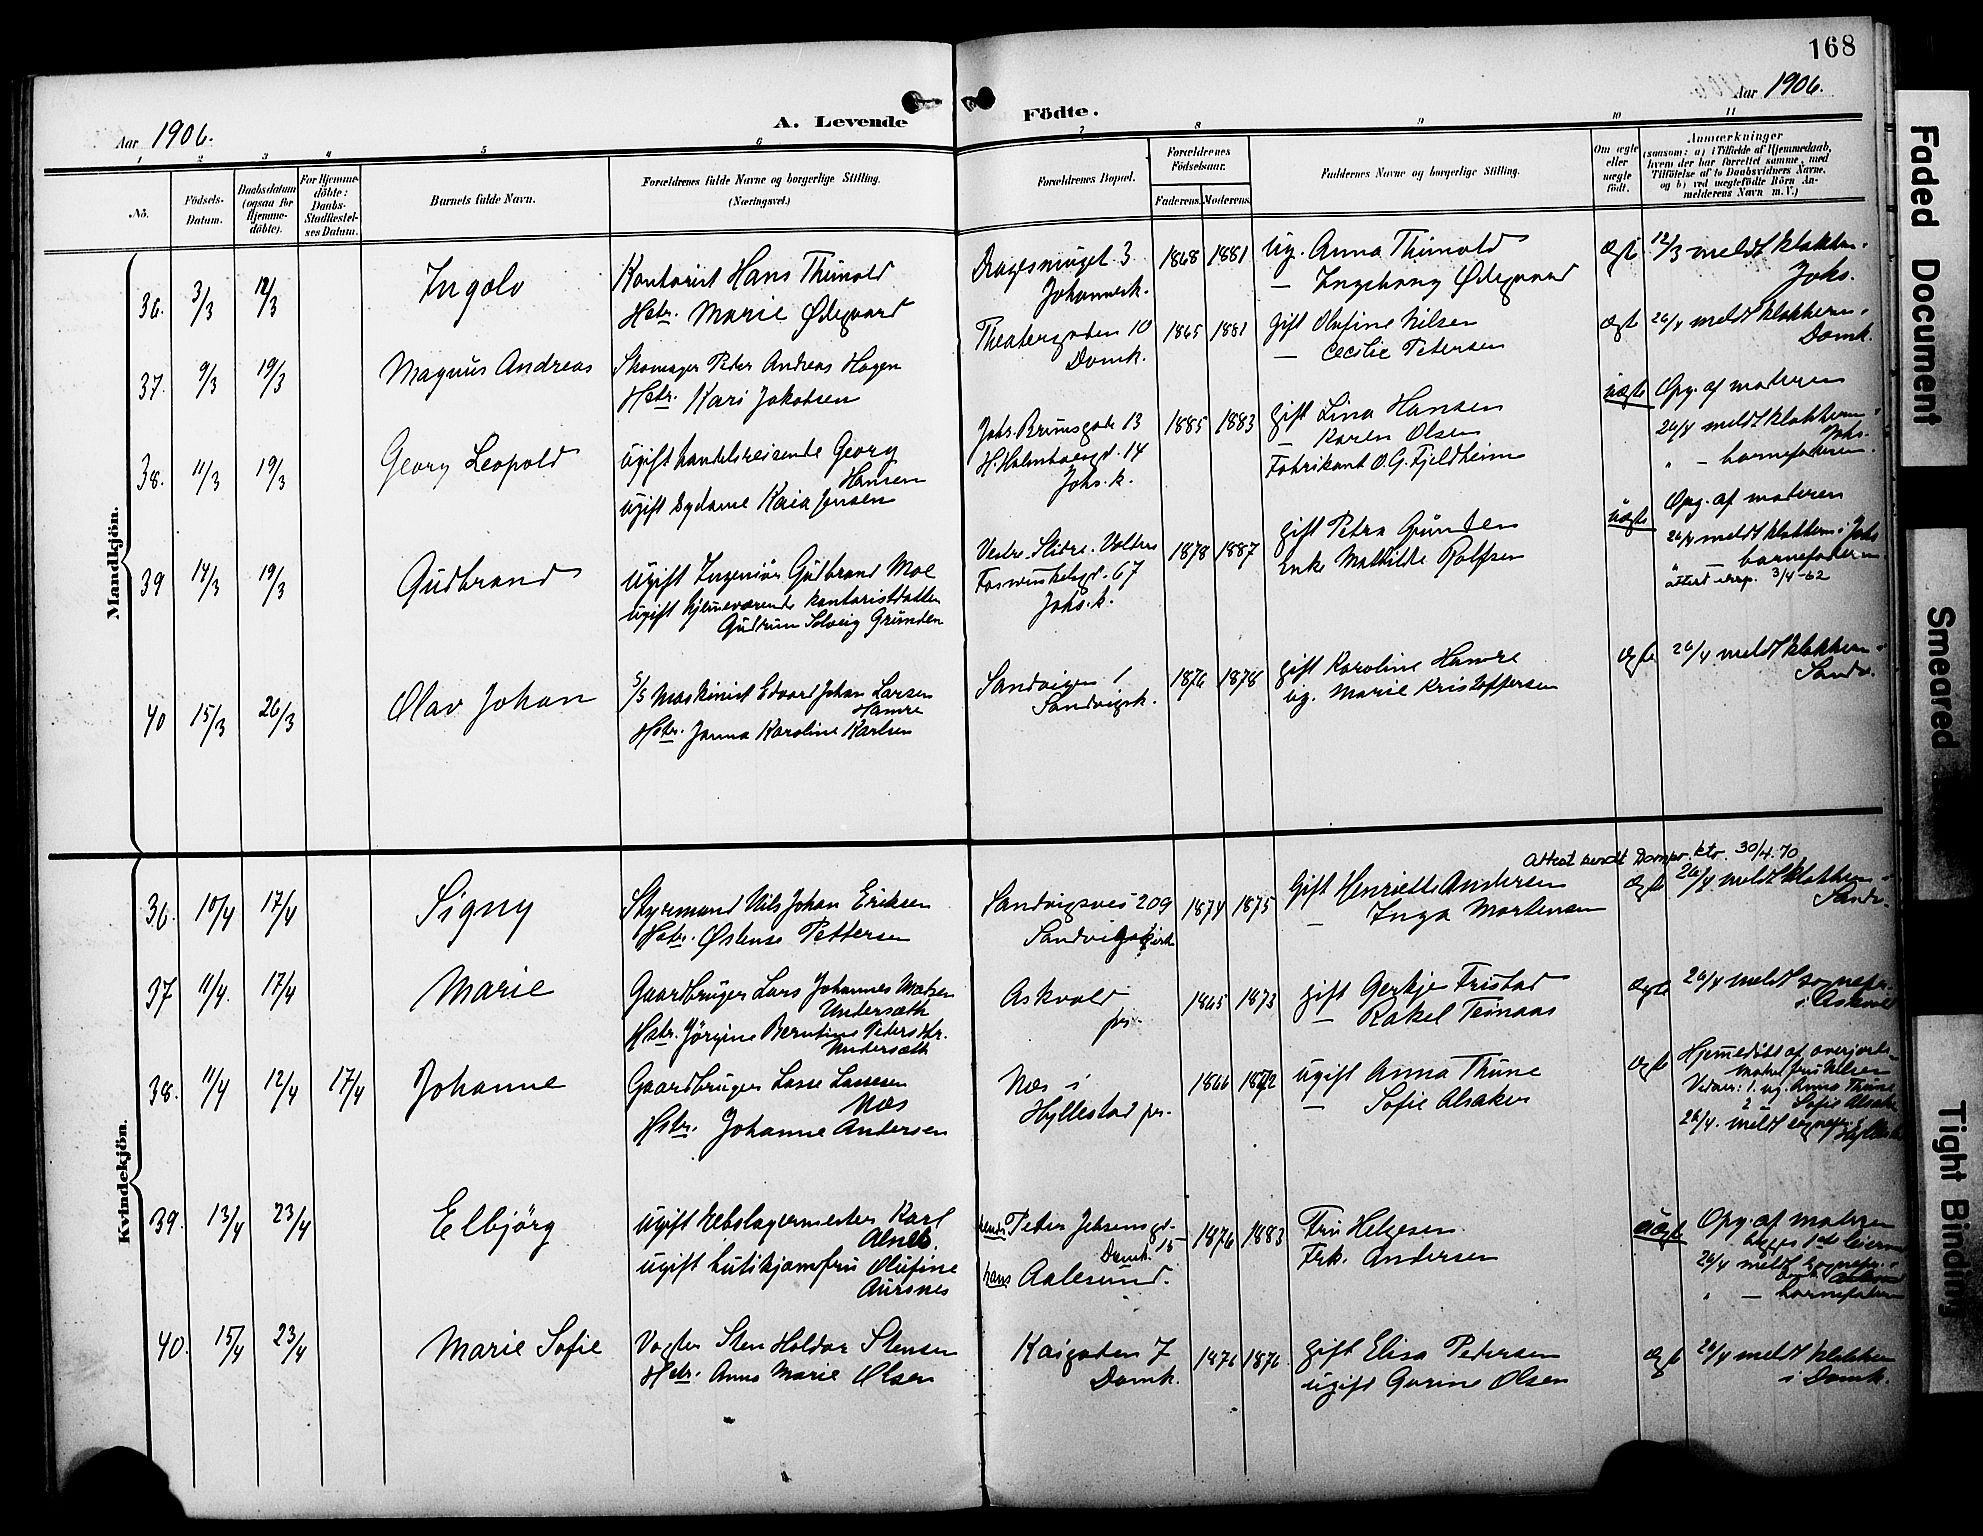 168
Aar 1906.
A. Levende Födte.
Aar 1906.
1 2 3 4 5 6 7 8 9 10 11
No.
Födsels-Datum.
Daabsdatum (ogsaa for Hjemme-döbte).
For Hjemme-döbte: Daabs-Stadfæstel-ses Datum.
Barnets fulde Navn.
Forældrenes fulde Navne og borgerlige Stilling.
(Næringsvei.)
Forældrenes Bopæl.
Forældrenes Födselsaar.
Faderens. Moderens.
Faddernes Navne og borgerlige Stilling.
Om ægte eller uægte födt.
Anmærkninger
(saasom: a) i Tilfælde af Hjemmedaab, hvem der har forrettet samme, med Tilföielse af to Daabsvidners Navne, og b) ved uægtefödte Börn An-melderens Navn m. V.)
Mandkjön.
36. 3/3 12/3 Ingolv
Kontorist Hans Thimold
Hstr. Marie Ødegaard
3
Johanneskk.
1868 1881
Ug. Anna Thimold
— Ingeborg Ødegaard
Ægte
12/3 meldt klokkeren i
Johs.
37. 9/3 19/3 Magnus Andreas
Skomager Peder Andreas Hagen
Hstr. Kari Jakobsen
Theatergaden 10
Domk.
1865 1881
Gift Olufine Nilsen
— Cecilie Petersen
Ægte
26/4 meldt klokkeren i
Domk.
38. 11/3 19/3 Georg Leopold
Ugift handelsreisende Georg
Hansen
Ugift Sydame Kaia Jensen
Johs. Brunsgade 13
H. Holmboesgd. 14
Johs. k.
1885 1883
Gift Lina Hansen
— Karen Olsen
Fabrikant O. G. Fjeldheim
Uægte
Opg. af moderen
26/4 meldt klokkeren i
Johs.
" — barnefaderen.
39 14/3 19/3 Gudbrand
Ugift Ingeniör Gudbrand Moe
Ugift hjemmeværende kontoristdatter
Gudrun Solveig Grunden
Vestre Slidre. Valdres
Fosswinkelsgd. 67
Johs. k.
1878 1887
Gift Petra Grunden
Enke Mathilde Rolfsen
Uægte
Opg. af moderen
26/4 meldt klokkeren i Johs
" — barnefaderen
attest eksp. 3/4-62
40 15/3 26/3 Olav Johan
S/S Maskinist Edvard Johan Larsen
Hamre
Hstr. Janna Karoline Karlsen
Sandvigen 1
Sandvigsk.
1876 1878
Gift Karoline Hamre
ug. Marie Kristoffersen
Ægte
26/4 meldt klokkeren i
Sandv.
Kvindekjön.
Attest sendt Dompr. ktr. 30/4.70
36. 10/4 17/4 Signy
Styrmand Nils Johan Eriksen
Hstr. Østense Pettersen
Sandvigsvei 209
1874 1875
Gift Henriette Andersen
— Inga Mortensen
Ægte
26/4 meldt klokkeren i
Sandv.
37 11/4. 17/4 Marie
Gaardbruger Lars Johannes Matsen
Undersæth
Hstr. Jörgine Berntine Petersdtr.
Undersæth
Askvold
pr.
1865 1873
Gift Gertje Fristad
— Rakel Teinaas
Ægte
26/4 meldt sognepr.
i Askvold
38. 11/4 12/4 17/4 Johanne
Gaardbruger Lasse Lassesen
Næs
Hstr. Johanne Andersen
Næs i
Hyllestad pr.
1866 1872
Ugift Anna Thune
— Sofie Alsaker
Ægte
Hjemmedöbt af overjorde-
moder fru Nilsen
Vidner: 1. ug. Anna Thune
2 Sofie Alsaker
26/4. meldt sognepr. i
39. 13/4 23/4 Elbjörg
Ugift rebslagermester Karl
Ugift butikjomfru Olufine
Aursnes
hendes Peter Jebsensgd.
Domk. 15
hans Aalesund.
1876 1883
Fru Helgesen
Frk. Andersen
Uægte
Opg. af moderen
26/4 meldt sognepr. i
" — barnefaderen
40. 15/4 23/4 Marie Sofie
Vogter Sten Haldor Stensen
Hstr. Anna Marie Olsen
Kaigaden 7
Domk.
1876 1876
Gift Elisa Pedersen
Ugift Gurine Olsen
Ægte
26/4 meldt klokkeren
i Domk.
Faded Document
Smeared
Tight Binding